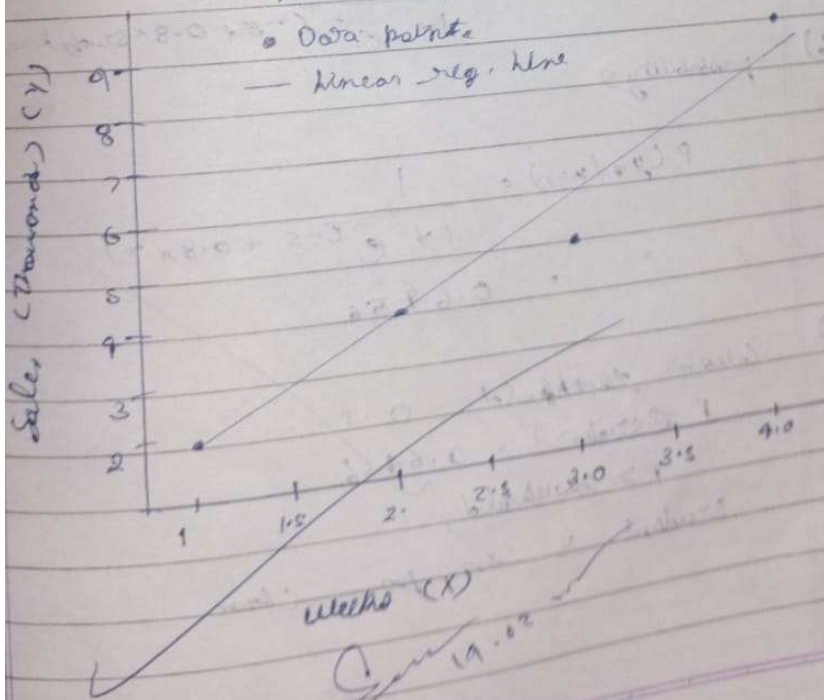 Data points
Linear reg. line
Sales (Thousands) (Y)
9
8
7
6
5
4
3
2
1
1.5
2.
2.5
3.0
3.5
4.0
Weeks (X)
19.02